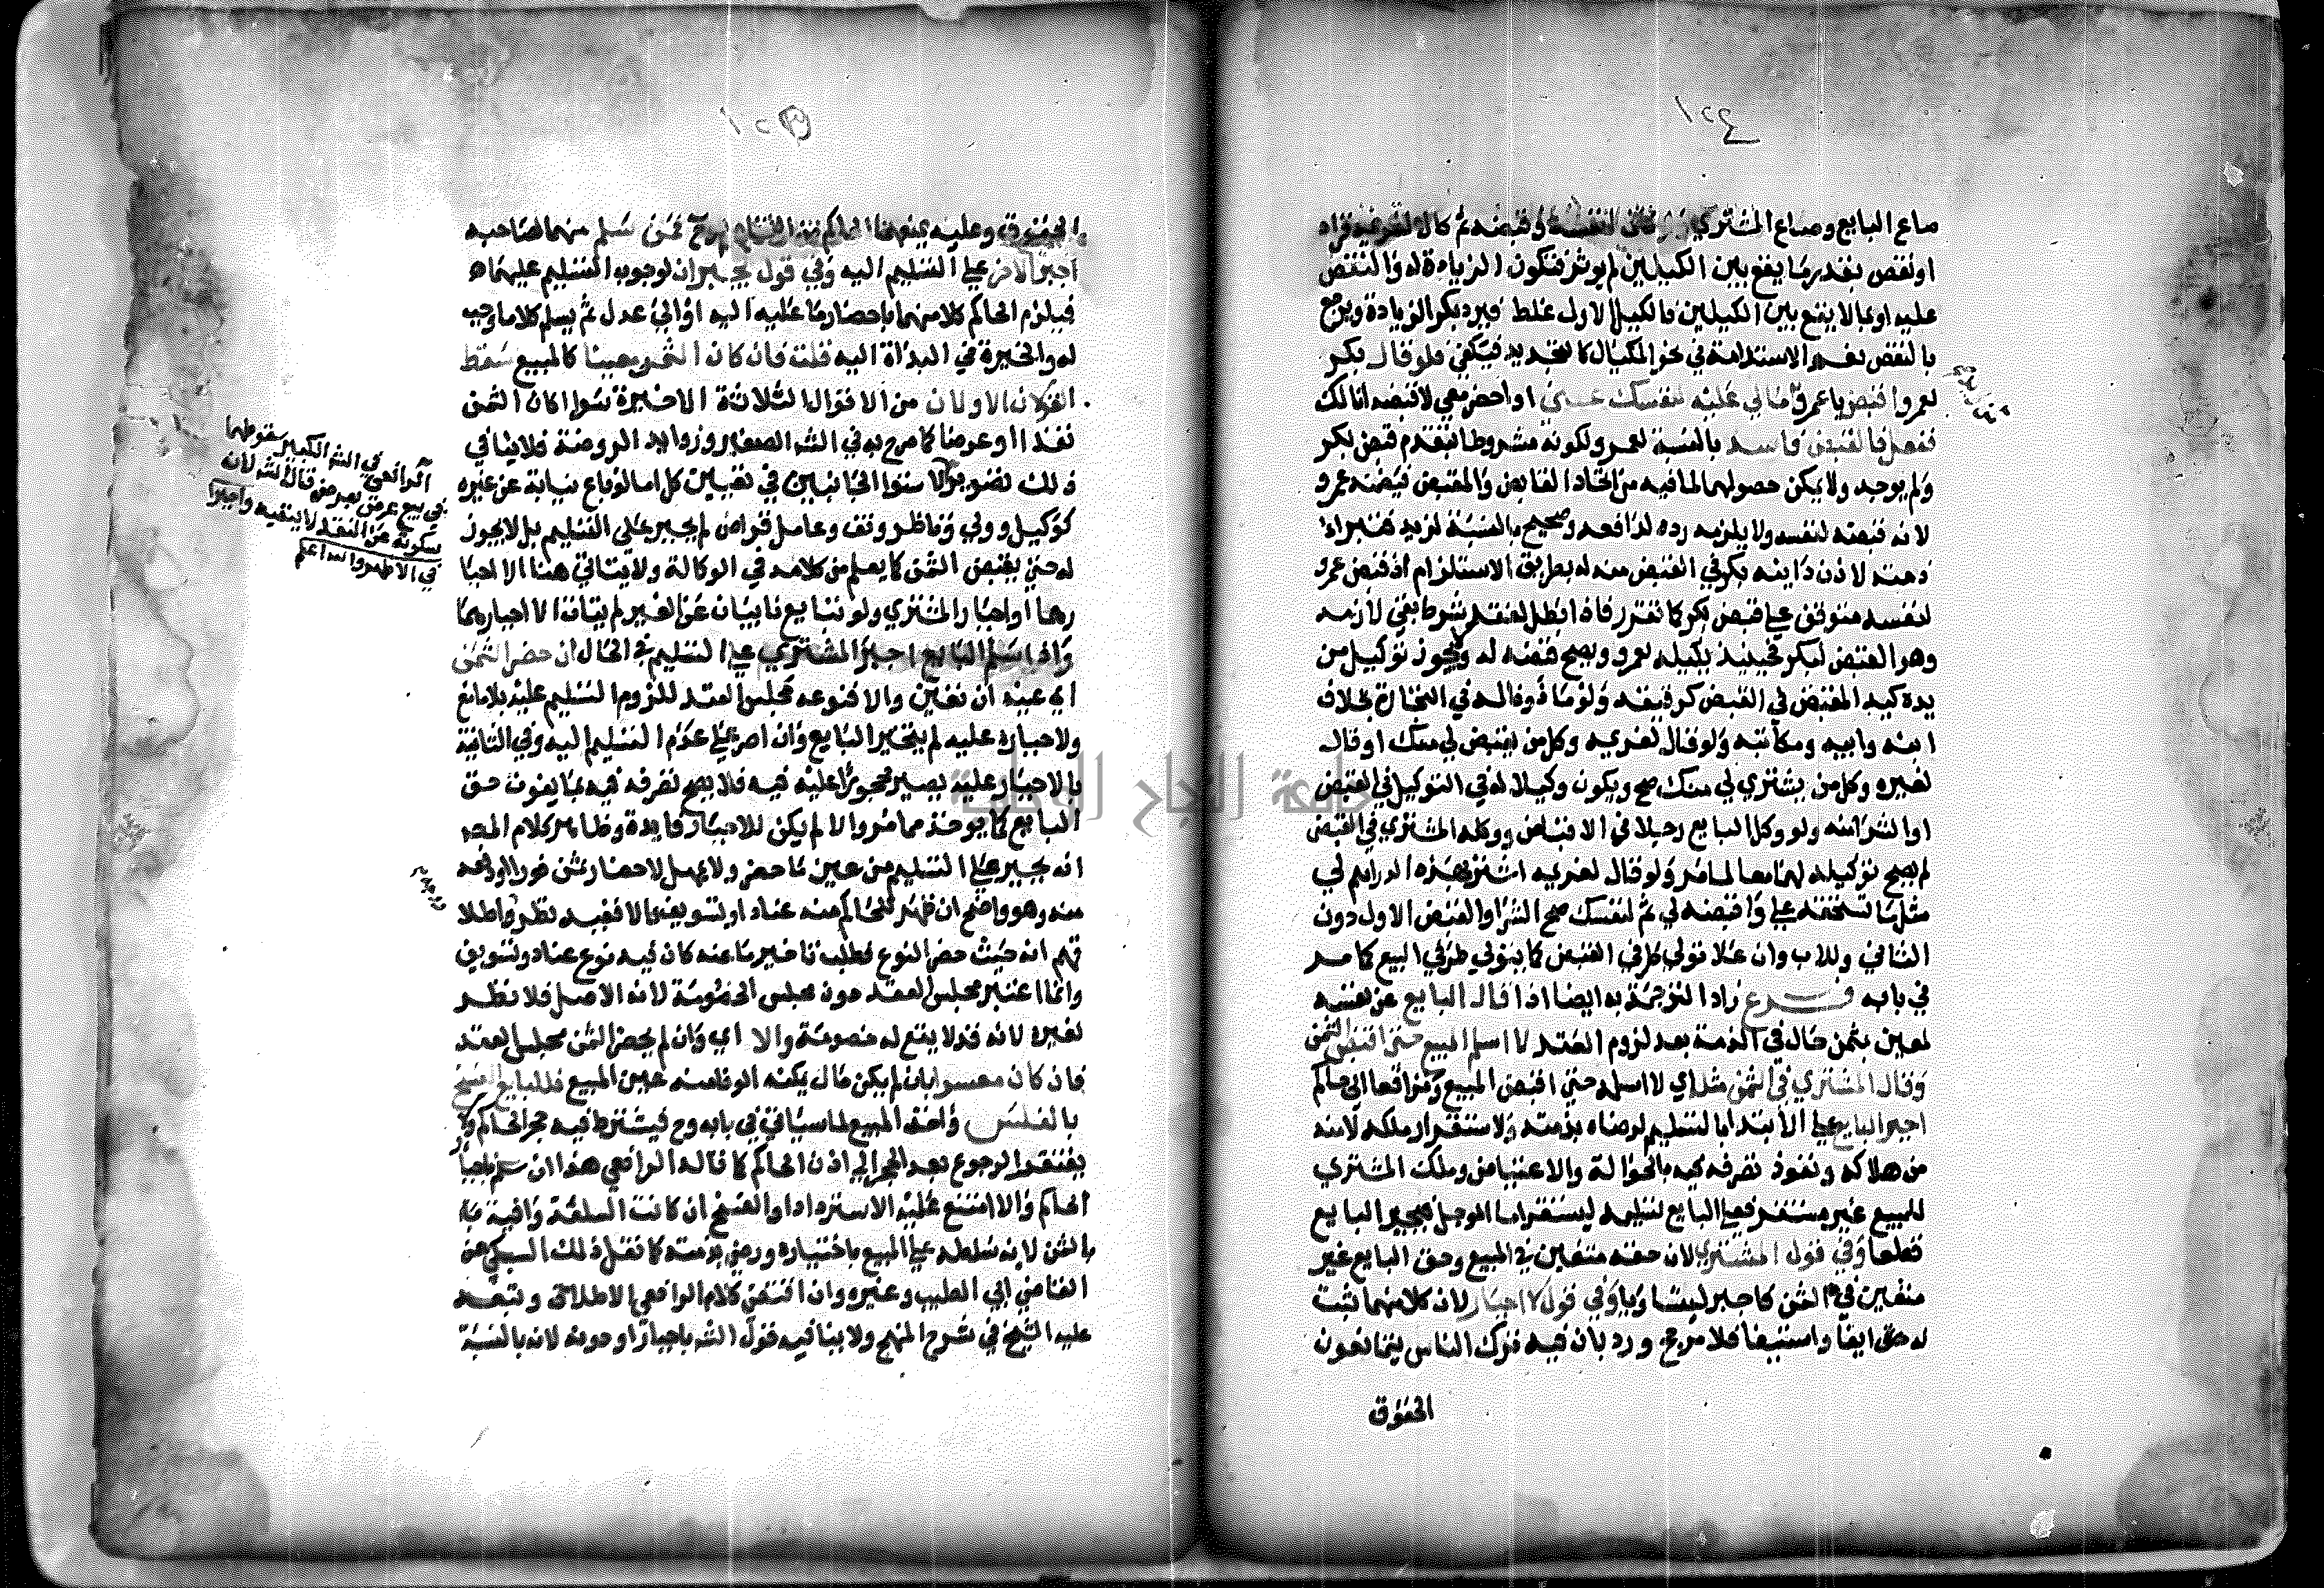 صاع البايع وصاع المشتري قبضه ثم كاله لغريمه فزاد
او نقص بقدر ما يقع بين الكيلين لم يوثر فتكون الزيادة له والنقص
عليه او بما لا يقع بين الكيلين فالكيل الاول غلط فيرد بكر الزيادة ويرجع
بالنقص الاستدامة في نحو المكيال كالتجديد فيكفي فلو قال بكر
لعمرو اقبض يا عمرو ما لي عليه لنفسك عني او احضر معي لاقبضه انا لك
ففعل فالقبض فاسد بالنسبة لعمرو لكونه مشروطا بتقدم قبض بكر
ولم يوجد ولا يمكن حصولهما لما فيه من اتحاد القابض والمقبض فيضمنه عمرو
لانه قبضه لنفسه ولا يلزمه رده لدافعه وصحيح بالنسبة لزيد فتبرا
ذمته لاذن داينه بكر في القبض منه له بطريق الاستلزام اذ قبض عمرو
لنفسه متوقف على قبض بكر كما تقرر فاذا بطل لفقد شرط بقي لازمه
وهو القبض لبكر فحينيذ يكيله لعمرو ويصح قبضه له ولا يجوز توكيل من
يده كيد المقبض في القبض كرقيقه ولو ماذونا له في التجارة بخلاف
ابنه وابيه ومكاتبه ولو قال لغريمه وكل من يقبض لي منك او قال
لغيره وكل من يشتري لي منك صح ويكون وكيلا له في التوكيل في القبض
او الشرا منه ولو وكل البايع رجلا في الاقباض ووكله المشتري في القبض
لم يصح توكيله لهما معا لما مر ولو قال لغريمه اشتر بهذه الدراهم لي
مثل ما تستحقه علي واقبضه لي ثم لنفسك صح الشرا والقبض الاول دون
الثاني وللاب وان علا تولي طرفي القبض كما يتولي طرفي البيع كما مر
في بابه فرع زاد الترجمة به ايضا اذا قال البايع عن نفسه
لمعين بثمن حال في الذمة بعد لزوم العقد لا اسلم المبيع حتى اقبض الثمن
وقال المشتري في الثمن مثله اي لا اسلمه حتى اقبض المبيع وترافعا الى حاكم
اجبر البايع على الابتدا بالتسليم لرضاه بذمته ولاستقرار ملكه لامنه
من هلاكه ونفوذ تصرفه فيه بالحوالة والاعتياض وملك المشتري
للمبيع غير مستقر فعلى البايع تسليمه ليستقر اما الموجل فيجبر البايع
قطعا وفي قول المشتري لان حقه متعين في المبيع وحق البايع غير
متعين في الثمن فاجبر ليتساويا وفي قول لا اجبار لان كلا منهما ثبت
له حق ايفا واستيفا فلا مرجح ورد بان فيه ترك الناس يتمانعون
الحقوق
الحقوق وعليه يمنعهما الحاكم من التخاصم فمن سلم منهما لصاحبه
اجبر الاخر على التسليم اليه وفي قول يجبران لوجوب التسليم عليهما
فيلزم الحاكم كلا منهما باحضار ما عليه اليه او الي عدل ثم يسلم كلا ما وجب
له والخيرة في البداة اليه قلت فان كان الثمن معينا كالمبيع سقط
القولان الاولان من الاقوال الثلاثة الاخيرة سوا كان الثمن
نقدا او عرضا كما صرح به في الشرح الصغير وزوايد الروضة فلا ينافي
ذلك لاستوا الجانبين في تعيين كل اما لو باع نيابة عن غيره
كوكيل وولي وناظر وقف وعامل قراض لم يجبر على التسليم بل لا يجوز
له حتى يقبض الثمن كما يعلم من كلامه في الوكالة ولا يتاتي هنا الا اجبا
رهما او اجبار المشتري ولو تبايع نايبان عن الغير لم يتات الا اجبارهما
واذا سلم البايع اجبر المشتري على التسليم في الحال ان حضر الثمن
اي عينه ان تعين والا فنوعه مجلس العقد للزوم التسليم عليه بلا مانع
ولاجباره عليه لم يتخير البايع وان اصر على عدم التسليم اليه وفي الثانية
بالاجبار عليه يصير محجورا عليه فيه فلا يصح تصرفه فيه بما يفوت حق
البايع كما يوخذ مما مر والا لم يكن للاجبار فايدة وظاهر كلام المص
انه يجبر على التسليم من عين ما حضر ولا يمهل لاحضار ثمن فورا ودفعه
منه وهو واضح ان ظهر للحاكم منه عناد او تسويف والا ففيه نظر واطلا
قهم انه حيث حضر النوع فطلب تاخير ما عنه كان فيه نوع عناد وتسويف
وانما اعتبر مجلس العقد دون مجلس الخصومة لانه الاصل فلا نظر
لغيره لانه قد لا يقع له خصومة والا اي وان لم يحضر الثمن مجلس العقد
فان كان معسرا بان لم يكن مال يمكنه الوفا منه غير المبيع فللبايع الفسخ
بالفلس واخذ المبيع لما سياتي في بابه وح فيشترط فيه حجر الحاكم ولا
يفتقر الرجوع بعد الحجر الي اذن الحاكم كما قاله الرافعي هذا ان سلم باجبار
الحاكم والا امتنع عليه الاسترداد والفسخ ان كانت السلعة وافية
بالثمن لانه سلطه على المبيع باختياره ورضي بذمته كما نقل ذلك السبكي عن
القاضي ابي الطيب وغيره وان اقتضي كلام الرافعي الاطلاق وتبعه
عليه الشيخ في شرح المنهج ولا ينافيه قول الشرح باجبار او دونه لانه بالنسبة
الرافعي في الشرح الكبير سقوطهما
في بيع عرض بعرض قال الشرح لان
سكوته عن النقد لا ينفيه واجبرا
في الاظهر والله اعلم